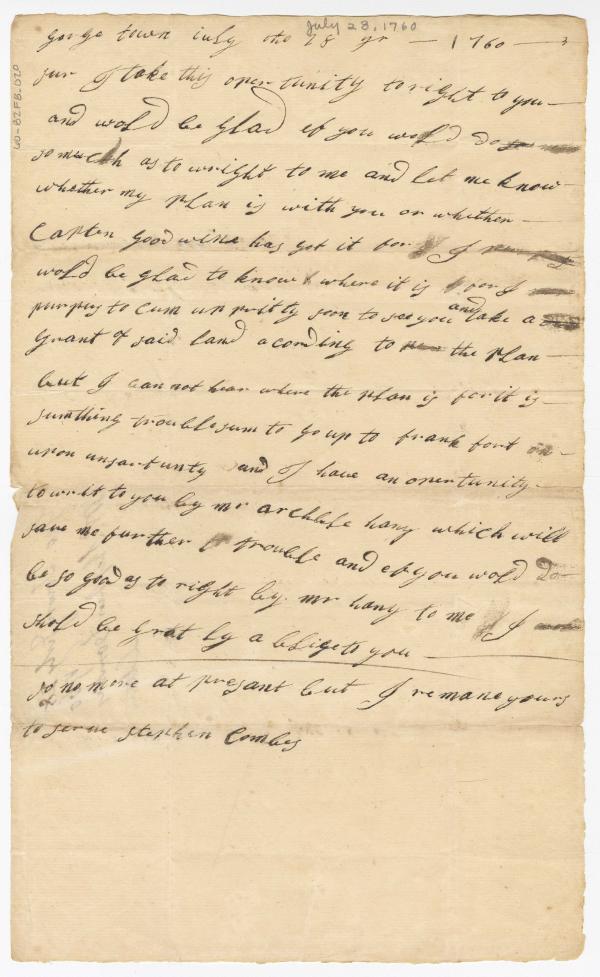 July 28, 1760
gorge town iuly the 28 yr — 1760 —
sur I take this opertunity to right to you —
and wold be glad ef you wold do
so much as to wright to me and let me know —
whether my plan is with you or whether —
Capten goodwine has got it for I
wold be glad to know where it is for I
purpus to cum up pritty soon to see you and take a
grant of said land acording to the plan —
but I can not hear where the plan is for it is —
sumthing troublesum to go up to frank fort on —
upon unsartunty and I have an opertunity —
to writ to you by mr hany which will
save me further trouble and ef you wold do —
be so good as to right by mr hany to me I
shold be grat ly a blige to you —
so no more at presant but I remane yours
to serve Stephen Combes